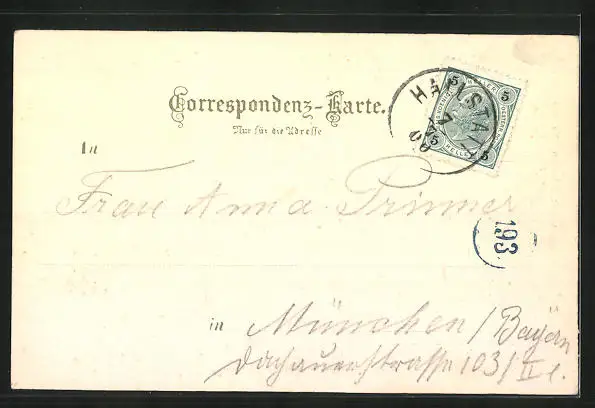 Correspondenz-Karte.
Nur für die Adresse
An
Frau Anna Primmer
in München / Bayern
Dachauerstrasse 103 / II l.
HALLSTATT
5 5
5 5
HELLER
193